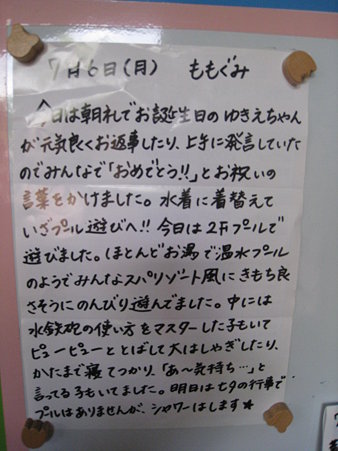 7月6日(月) ももぐみ
今日は朝礼でお誕生日のゆきえちゃん
が元気良くお返事したり、上手に発言していた
のでみんなで「おめでとう!!」とお祝いの
言葉をかけました。水着に着替えて
いざプール遊びへ!! 今日は2Fプールで
遊びました。ほとんどお湯で温水プール
のようでみんなスパリゾート風にきもち良
さそうにのんびり遊んでました。中には
水鉄砲の使い方をマスターした子もいて
ピューピューととばして大はしゃぎしたり、
かたまで寝てつかり、「あ〜気持ち…」と
言ってる子もいてました。明日は七夕の行事で
プールはありませんが、シャワーはします★